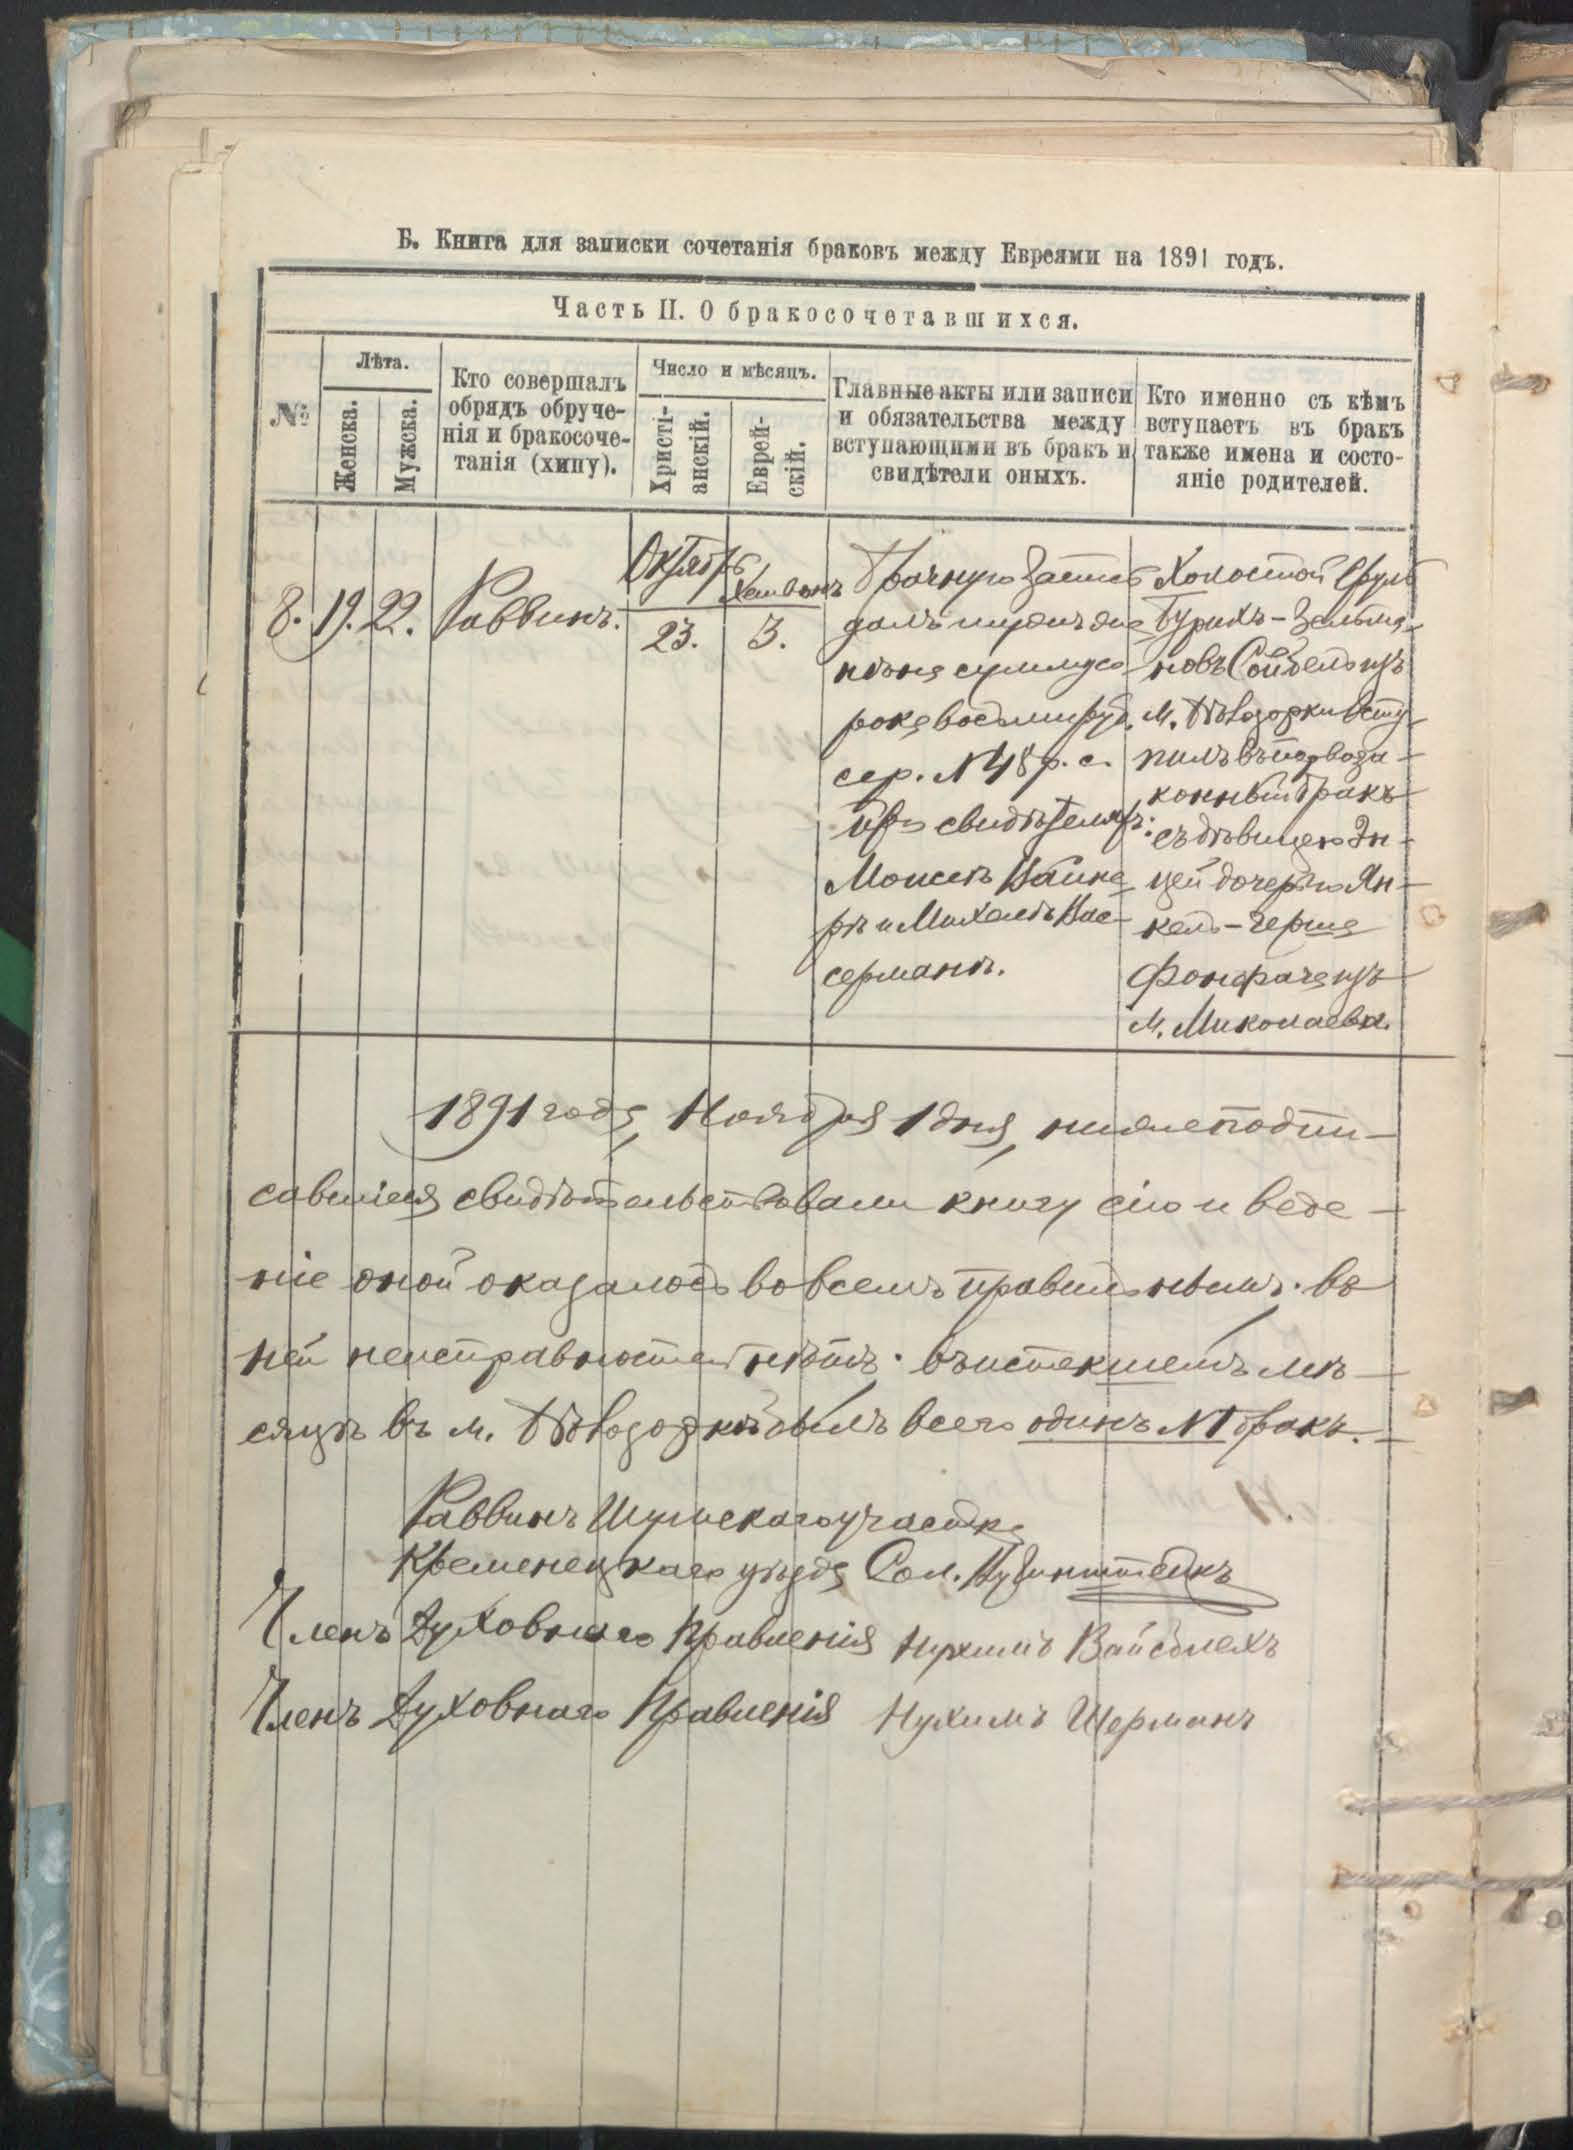 Б. Книга для записки сочетанія браковъ между Евреями на 1891 годъ.
Часть II. О бракосочетавшихся.
№
Лѣта.
Женска.
Мужска.
Кто совершалъ
обрядъ обруче-
нія и бракосоче-
танія (хипу).
Число и мѣсяцъ.
Христі-
анскій.
Еврей-
скій.
Главные акты или записи
и обязательства между
вступающими въ бракъ и
свидѣтели оныхъ.
Кто именно съ кѣмъ
вступаетъ въ бракъ
также имена и состо-
яніе родителей.
8.
19.
22.
Раввинъ.
Октябрь
23.
Хешвонъ
3.
Брачную запись
далъ женихъ
на сумму со
рокъ восемь руб.
сер. № 48 р. с.
При свидѣтеляхъ:
Моисеѣ Вайне
рѣ и Михелѣ Вас-
серманѣ.
Холостой Сруль
Бурихъ-Зельма-
новъ Сойбель изъ
м. Бѣлозорки всту-
пилъ въ первоза-
конный бракъ
съ дѣвицею Эн-
цей дочерью Ян-
кель-Герша
Фонфача изъ
м. Миколаевки.
1891 года, Ноября 1 дня, нижеподпи-
савшіеся свидѣтельствовали книгу сію и веде-
ніе оной оказалось во всемъ правильнымъ. въ
ней неисправностей нѣтъ. въ истекшемъ мѣ-
сяцѣ въ м. Бѣлозоркѣ былъ всего одинъ № 1 бракъ.
Раввинъ Шумскаго участка
Кременецкаго уѣзда Сол.
Членъ Духовнаго Правленія Нухимъ Вайсблехъ
Членъ Духовнаго Правленія Нухимъ Шерманъ